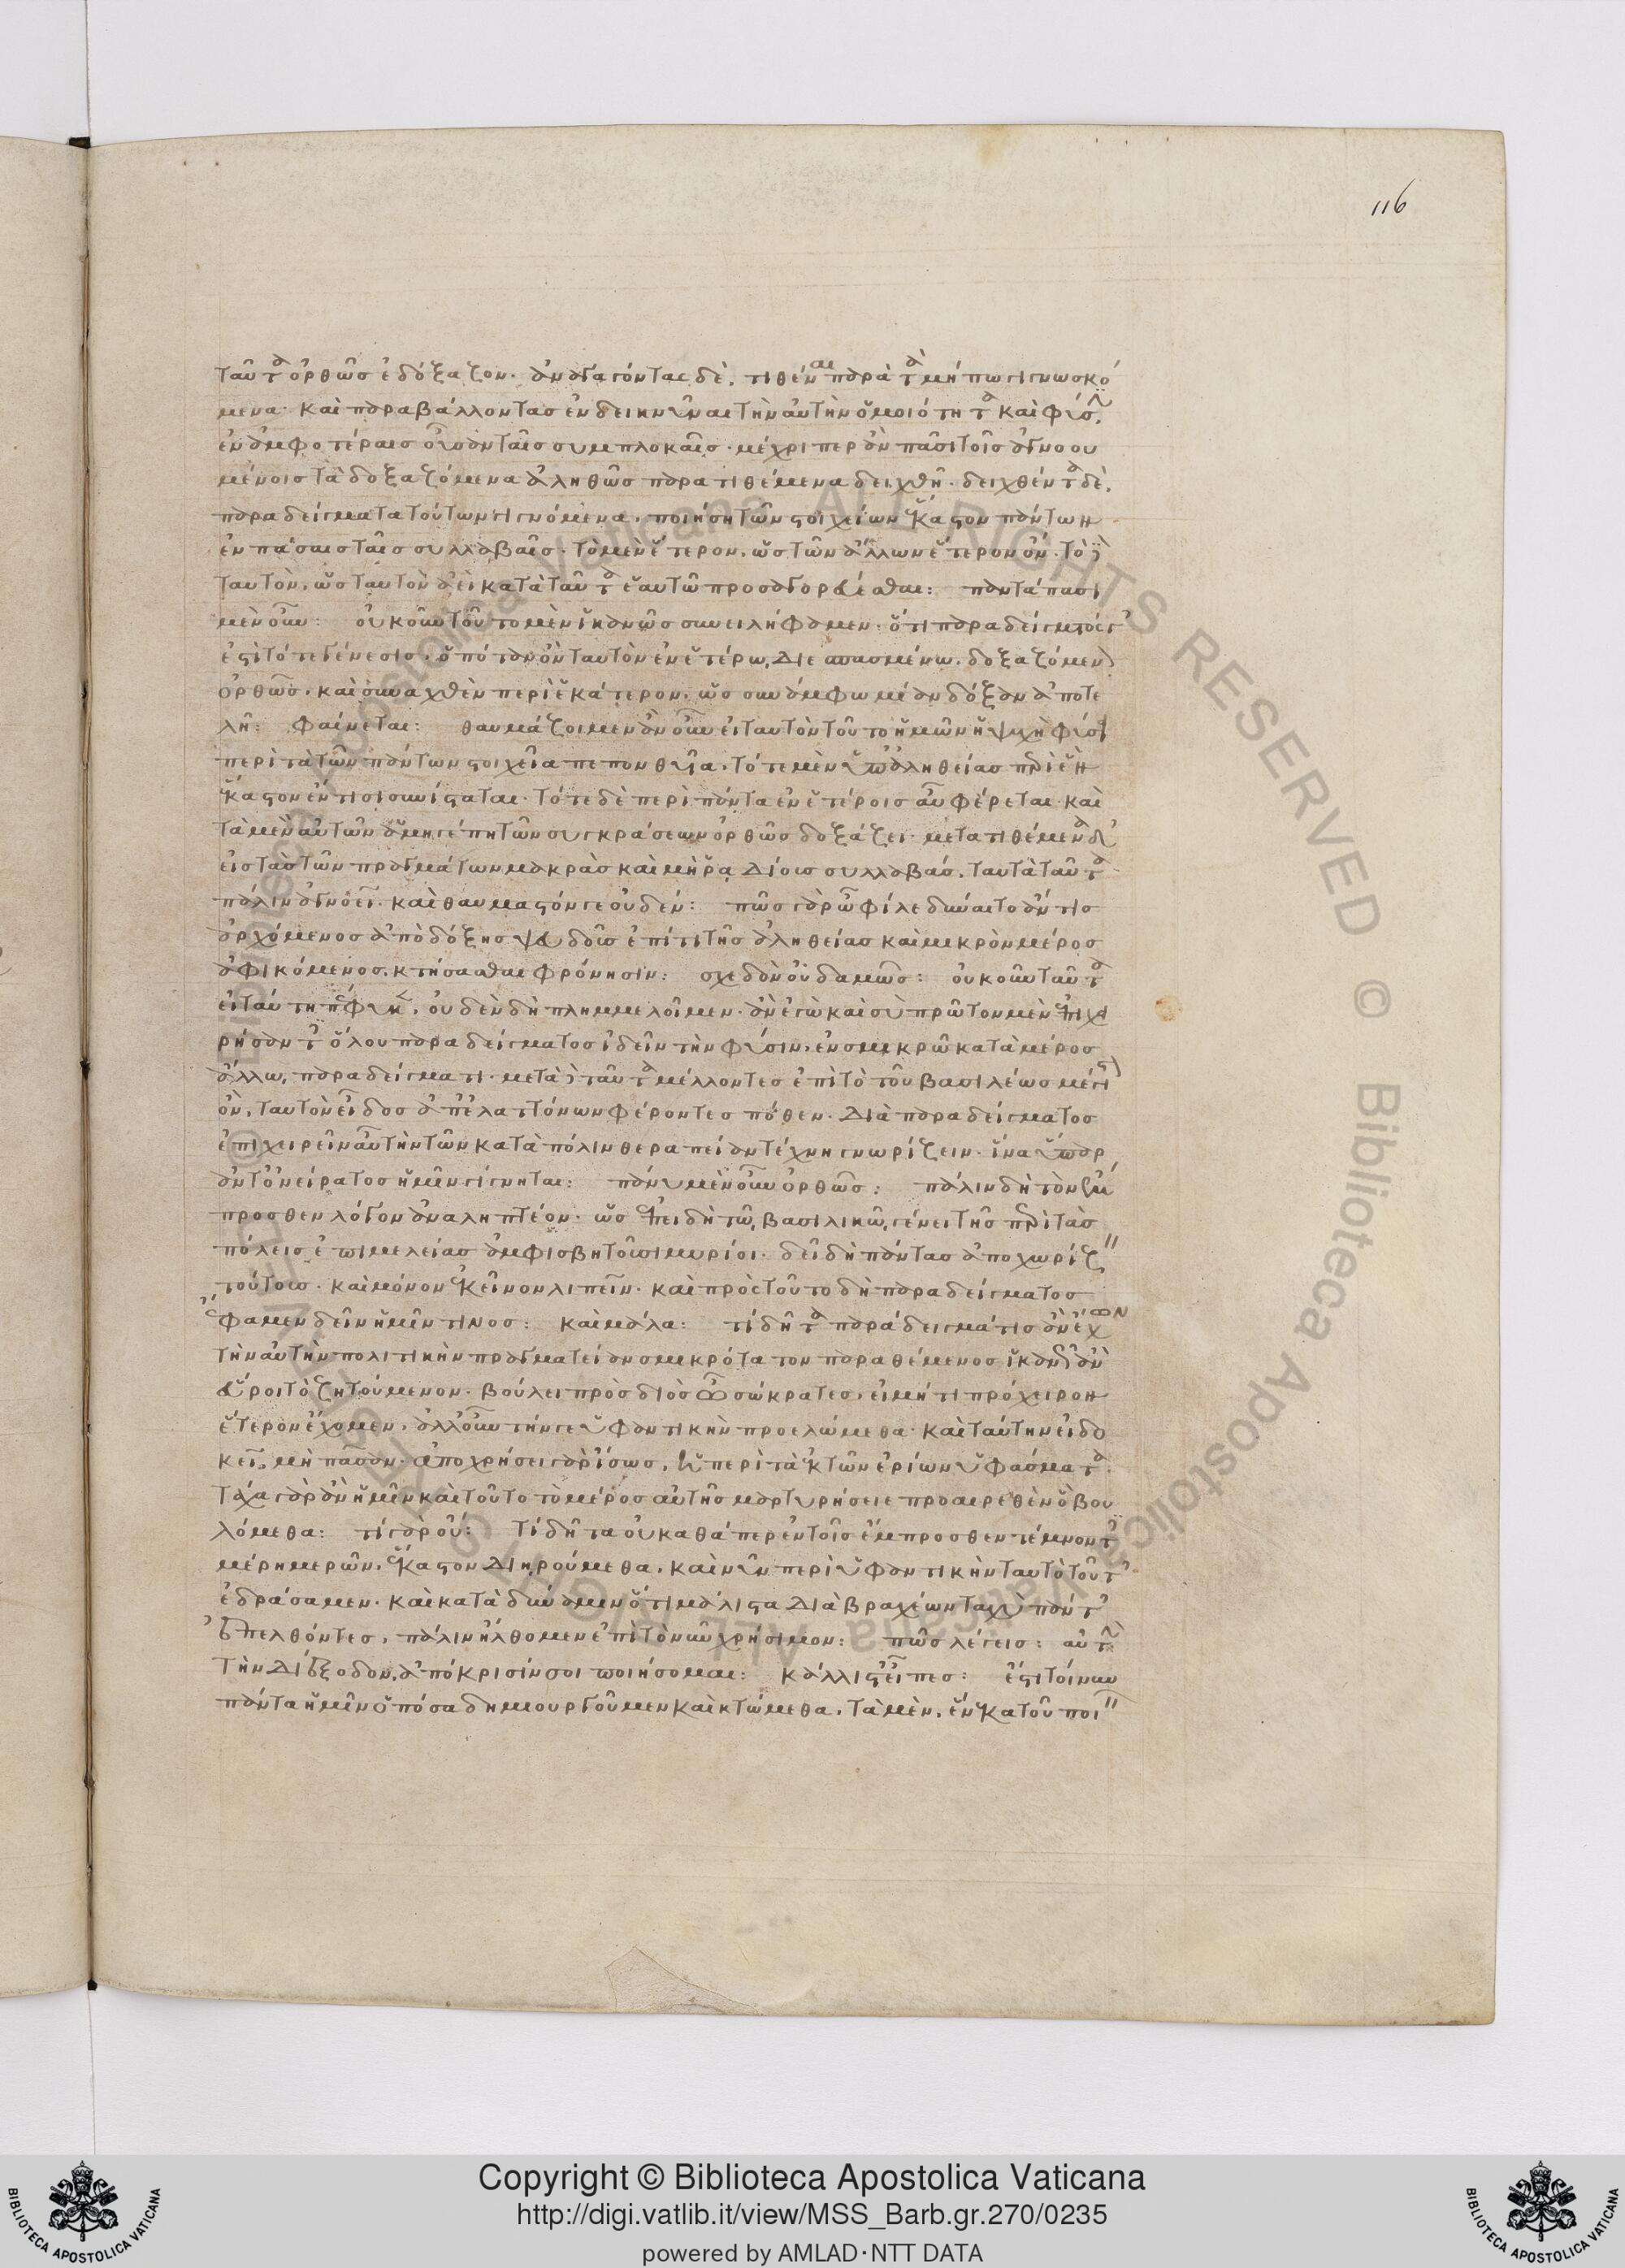 116
ταῦτα ὀρθῶς ἐδόξαζον· ἀναγαγόντας δὲ, τιθέναι παρὰ τὰ μήπω γιγνωσκό
μενα· καὶ παραβάλλοντας ἐνδεικνῦναι τὴν αὐτὴν ὁμοιότητα καὶ φύσιν,
ἐν ἀμφοτέραις οὖσαν ταῖς συμπλοκαῖς· μέχρι περ ἂν πᾶσι τοῖς ἀγνοου
μένοις τὰ δοξαζόμενα ἀληθῶς παρατιθέμενα δειχθῆ· δειχθέντα δὲ,
παραδείγματα τούτων γιγνόμενα, ποιήση τῶν στοιχείων ἕκαστον πάντων
ἐν πάσαις ταῖς συλλαβαῖς· τὸ μὲν ἕτερον, ὡς τῶν ἄλλων ἕτερον ὄν· τὸ δὲ
ταυτὸν, ὡς ταυτὸν ἀεὶ κατὰ ταῦτα ἑαυτῶ προσαγορεύεσθαι: παντάπασι
μὲν οὖν: οὐκοῦν τοῦτο μὲν ἱκανῶς συνειλήφαμεν· ὅτι παραδείγματός γ'
ἐστὶ τότε γένεσις, ὁπόταν ὂν ταυτὸν ἐν ἑτέρω, διεσπασμένω, δοξαζόμενον
ὀρθῶς, καὶ συναχθὲν περὶ ἑκάτερον, ὡς συνάμφω μίαν δόξαν ἀποτε
λῆ: φαίνεται: θαυμάζοιμεν ἂν οὖν εἰ ταυτὸν τοῦτο ἡμῶν ἡ ψυχὴ φύσει
περὶ τὰ τῶν πάντων στοιχεῖα πεπονθυῖα, τότε μὲν ὑπ' ἀληθείας περὶ ἓν
ἕκαστον ἔν τισι συνίσταται· τότε δὲ περὶ πάντα ἐν ἑτέροις αὖ φέρεται· καὶ
τὰ μὲν αὐτῶν ἁμηγέπη τῶν συγκράσεων ὀρθῶς δοξάζει· μετατιθέμενα δ'
εἰς τὰς τῶν πραγμάτων μακρὰς καὶ μὴ ῥαδίους συλλαβάς, ταυτὰ ταῦτα
πάλιν ἀγνοεῖ· καὶ θαυμαστόν γε οὐδέν: πῶς γὰρ ὦ φίλε δύναιτο ἄν τις
ἀρχόμενος ἀπὸ δόξης ψευδοῦς ἐπί τι τῆς ἀληθείας καὶ μικρὸν μέρος
ἀφικόμενος, κτήσασθαι φρόνησιν: σχεδὸν οὐδαμῶς: οὐκοῦν ταῦτα
εἰ ταύτη πέφυκεν, οὐδὲν δὴ πλημμελοῖμεν ἂν ἐγὼ καὶ σὺ πρῶτον μὲν ἐπιχει
ρήσαντε ὅλου παραδείγματος ἰδεῖν τὴν φύσιν, ἐν σμικρῶ κατὰ μέρος
ἄλλω, παραδείγματι· μετὰ δὲ ταῦτα μέλλοντες ἐπὶ τὸ τοῦ βασιλέως μέγιστον
ὄν, ταυτὸν εἶδος ἀπ' ἐλαττόνων φέροντες πόθεν· διὰ παραδείγματος
ἐπιχειρεῖν αὖ τὴν τῶν κατὰ πόλιν θεραπείαν τέχνη γνωρίζειν· ἵνα ὕπαρ
ἀντ' ὀνείρατος ἡμῖν γίγνηται: πάνυ μὲν οὖν ὀρθῶς: πάλιν δὴ τὸν ἔμ
προσθεν λόγον ἀναληπτέον· ὡς ἐπειδὴ τῶ, βασιλικῶ, γένει τῆς περὶ τὰς
πόλεις ἐπιμελείας ἀμφισβητοῦσι μυρίοι· δεῖ δὴ πάντας ἀποχωρίζειν
τούτους· καὶ μόνον ἐκεῖνον λιπεῖν· καὶ πρὸς τοῦτο δὴ παραδείγματος
ἔφαμεν δεῖν ἡμῖν τινος: καὶ μάλα: τί δῆτα παράδειγμά τις ἂν ἔχων
τὴν αὐτὴν πολιτικὴν πραγματείαν σμικρότατον παραθέμενος ἱκανῶς ἂν
εὕροι τὸ ζητούμενον· βούλει πρὸς διὸς ὦ σώκρατες, εἰ μή τι πρόχειρον
ἕτερον ἔχομεν, ἀλλ' οὖν τήν γε ὑφαντικὴν προελώμεθα· καὶ ταύτην εἰ δο
κεῖ, μὴ πᾶσαν· ἀποχρήσει γὰρ ἴσως, ἡ περὶ τὰ ἐκ τῶν ἐρίων ὑφάσματα·
τάχα γὰρ ἂν ἡμῖν καὶ τοῦτο τὸ μέρος αὐτῆς μαρτυρήσειε προαιρεθὲν ὃ βου
λόμεθα: τί γὰρ οὔ: τί δῆτα οὐ καθάπερ ἐν τοῖς ἔμπροσθεν τέμνοντες
μέρη μερῶν, ἕκαστον διηρούμεθα, καὶ νῦν περὶ ὑφαντικὴν ταυτὸ τοῦτ'
ἐδράσαμεν· καὶ κατὰ δύναμιν ὅτι μάλιστα διὰ βραχέων ταχὺ πάντ'
ἐπελθόντες, πάλιν ἤλθομεν ἐπὶ τὸ νῦν χρήσιμον: πῶς λέγεις: αὐτὴν
τὴν διέξοδον, ἀπόκρισίν σοι ποιήσομαι: κάλλιστ' εἶπες: ἔστι τοίνυν
πάντα ἡμῖν ὁπόσα δημιουργοῦμεν καὶ κτώμεθα, τὰ μὲν, ἕνεκα τοῦ ποιεῖν
Copyright © Biblioteca Apostolica Vaticana
http://digi.vatlib.it/view/MSS_Barb.gr.270/0235
powered by AMLAD·NTT DATA